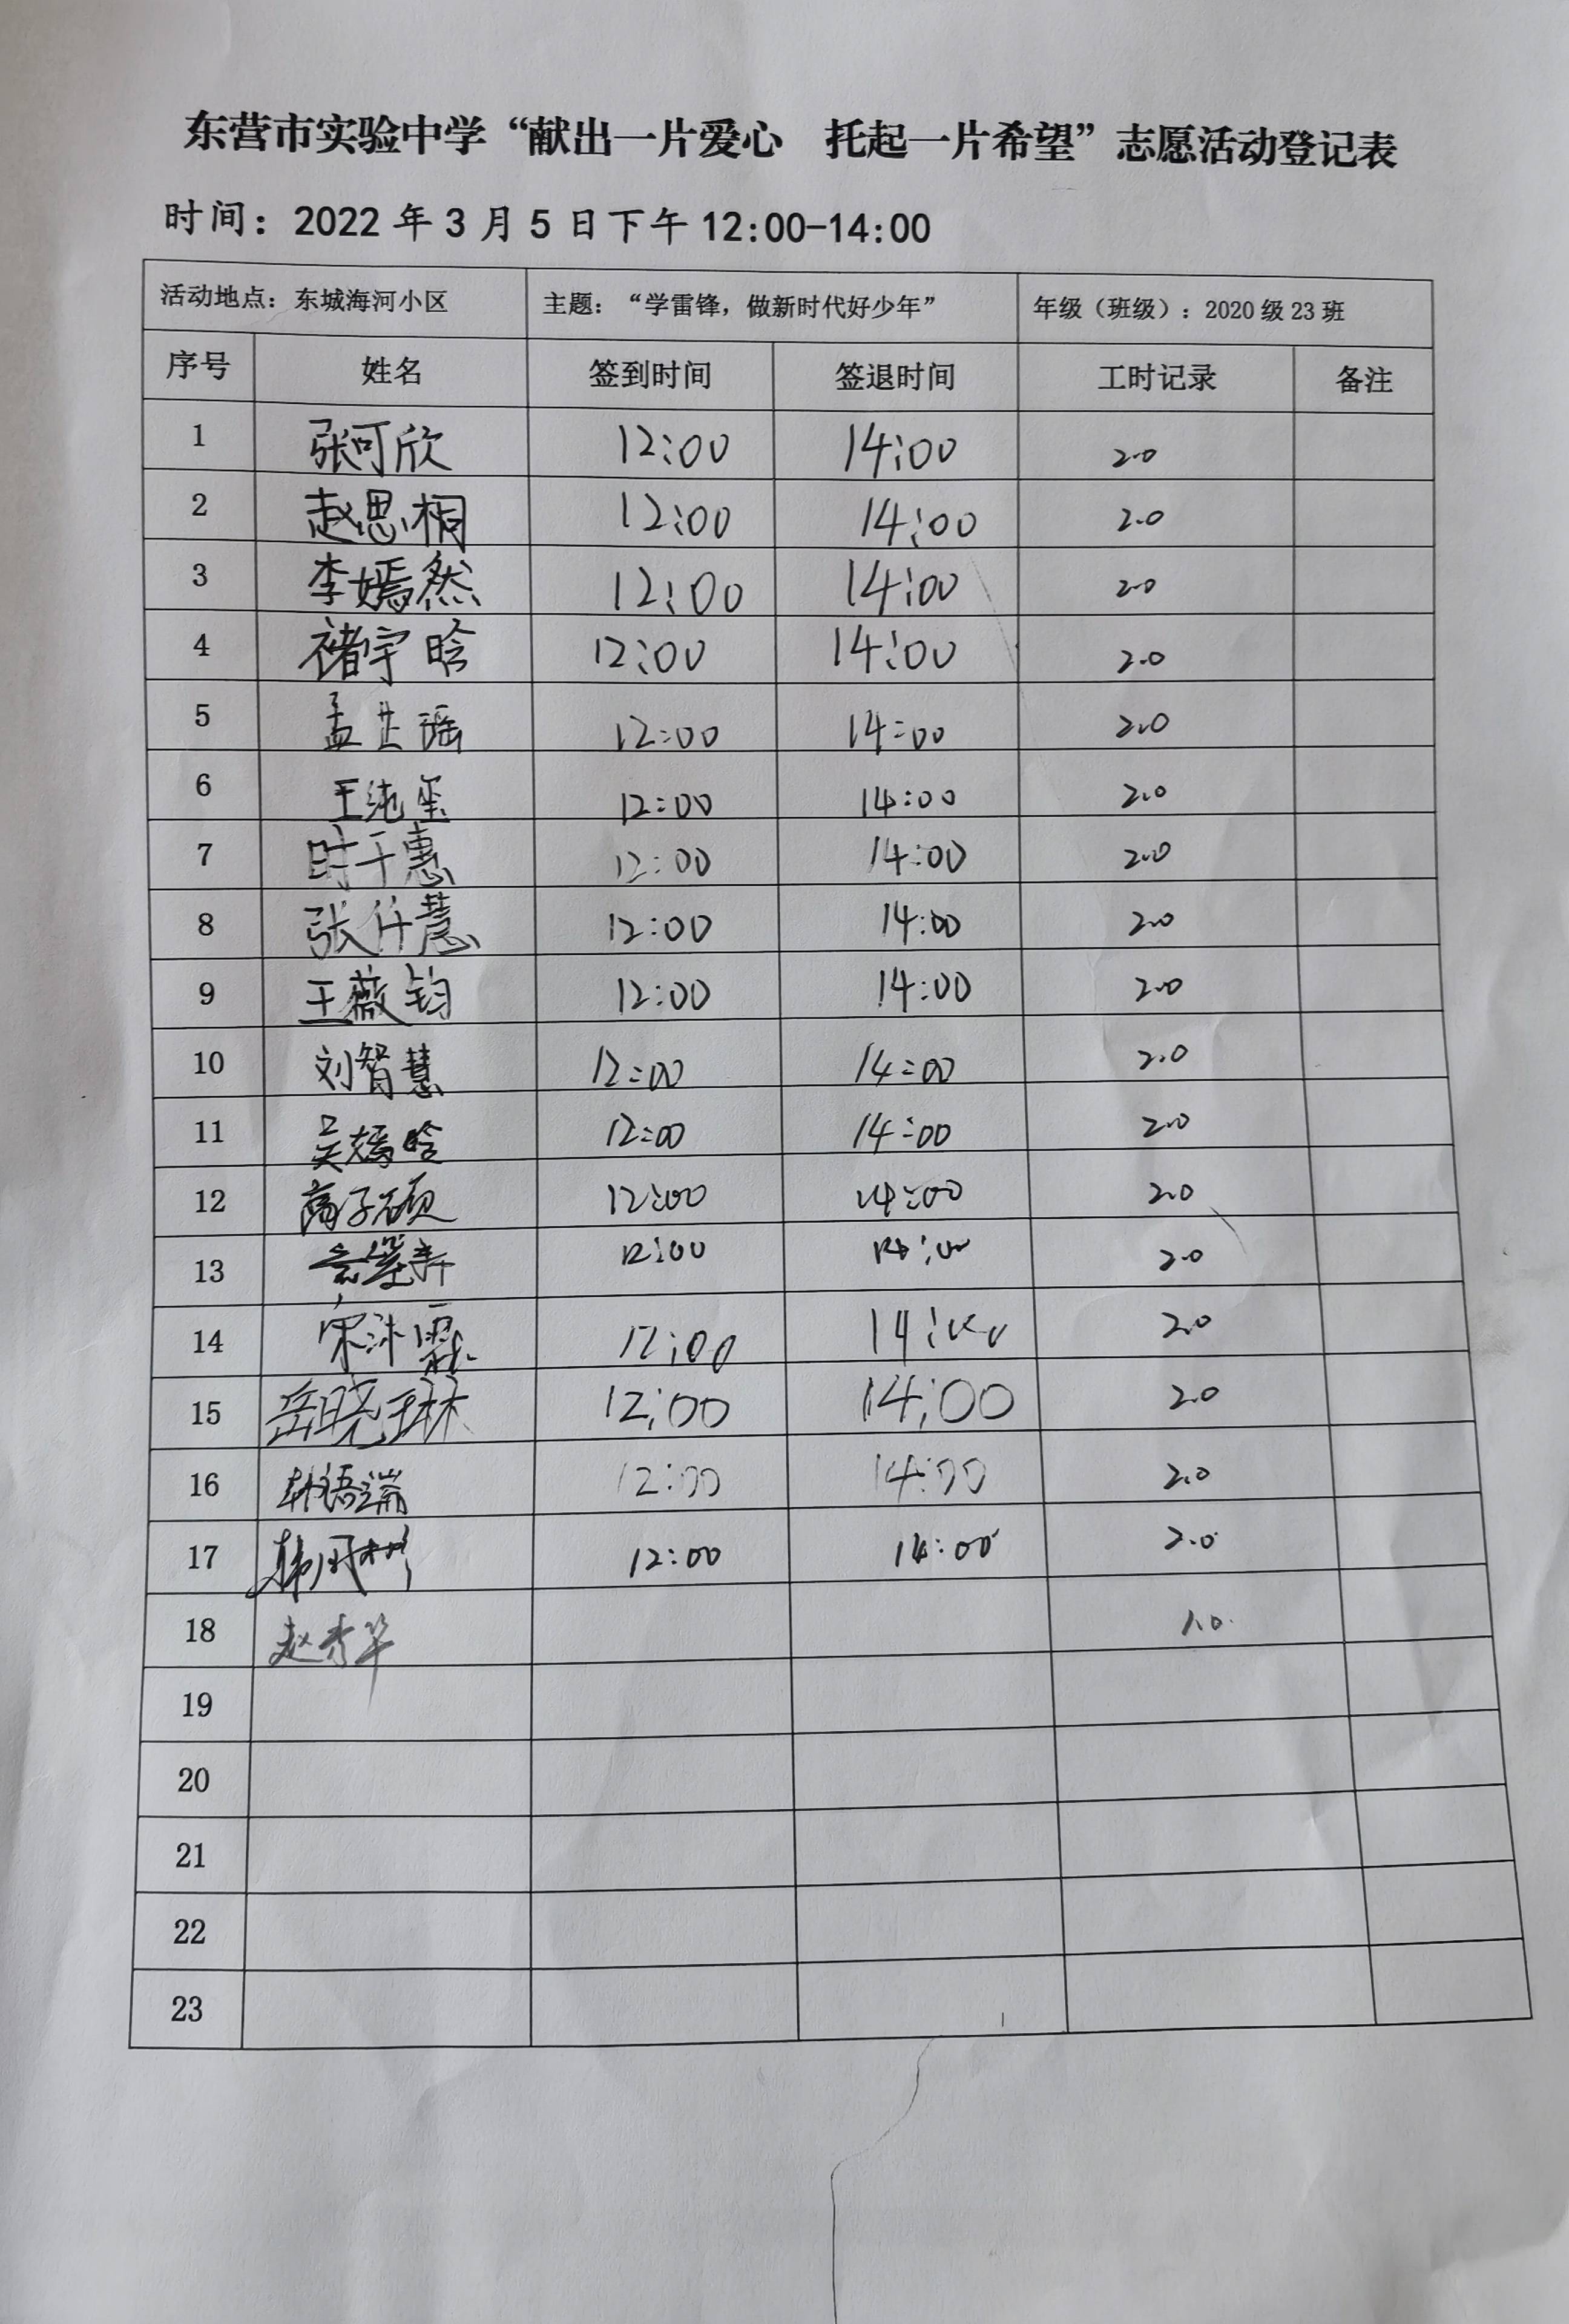 东营市实验中学“献出一片爱心 托起一片希望”志愿活动登记表
时间：2022年3月5日下午12:00-14:00
活动地点：东城海河小区 主题：“学雷锋，做新时代好少年” 年级（班级）：2020级23班
序号 姓名 签到时间 签退时间 工时记录 备注
1 张可欣 12:00 14:00 2.0
2 赵思桐 12:00 14:00 2.0
3 李嫣然 12:00 14:00 2.0
4 褚宇晗 12:00 14:00 2.0
5 孟芷瑶 12:00 14:00 2.0
6 王纯玺 12:00 14:00 2.0
7 时千惠 12:00 14:00 2.0
8 张仟慧 12:00 14:00 2.0
9 王薇钧 12:00 14:00 2.0
10 刘智慧 12:00 14:00 2.0
11 吴嫣晗 12:00 14:00 2.0
12 商子硕 12:00 14:00 2.0
13 12:00 14:00 2.0
14 宋沐霖 12:00 14:00 2.0
15 岳晓琳 12:00 14:00 2.0
16 韩语端 12:00 14:00 2.0
17 12:00 14:00 2.0
18 赵秀华 1.0
19
20
21
22
23